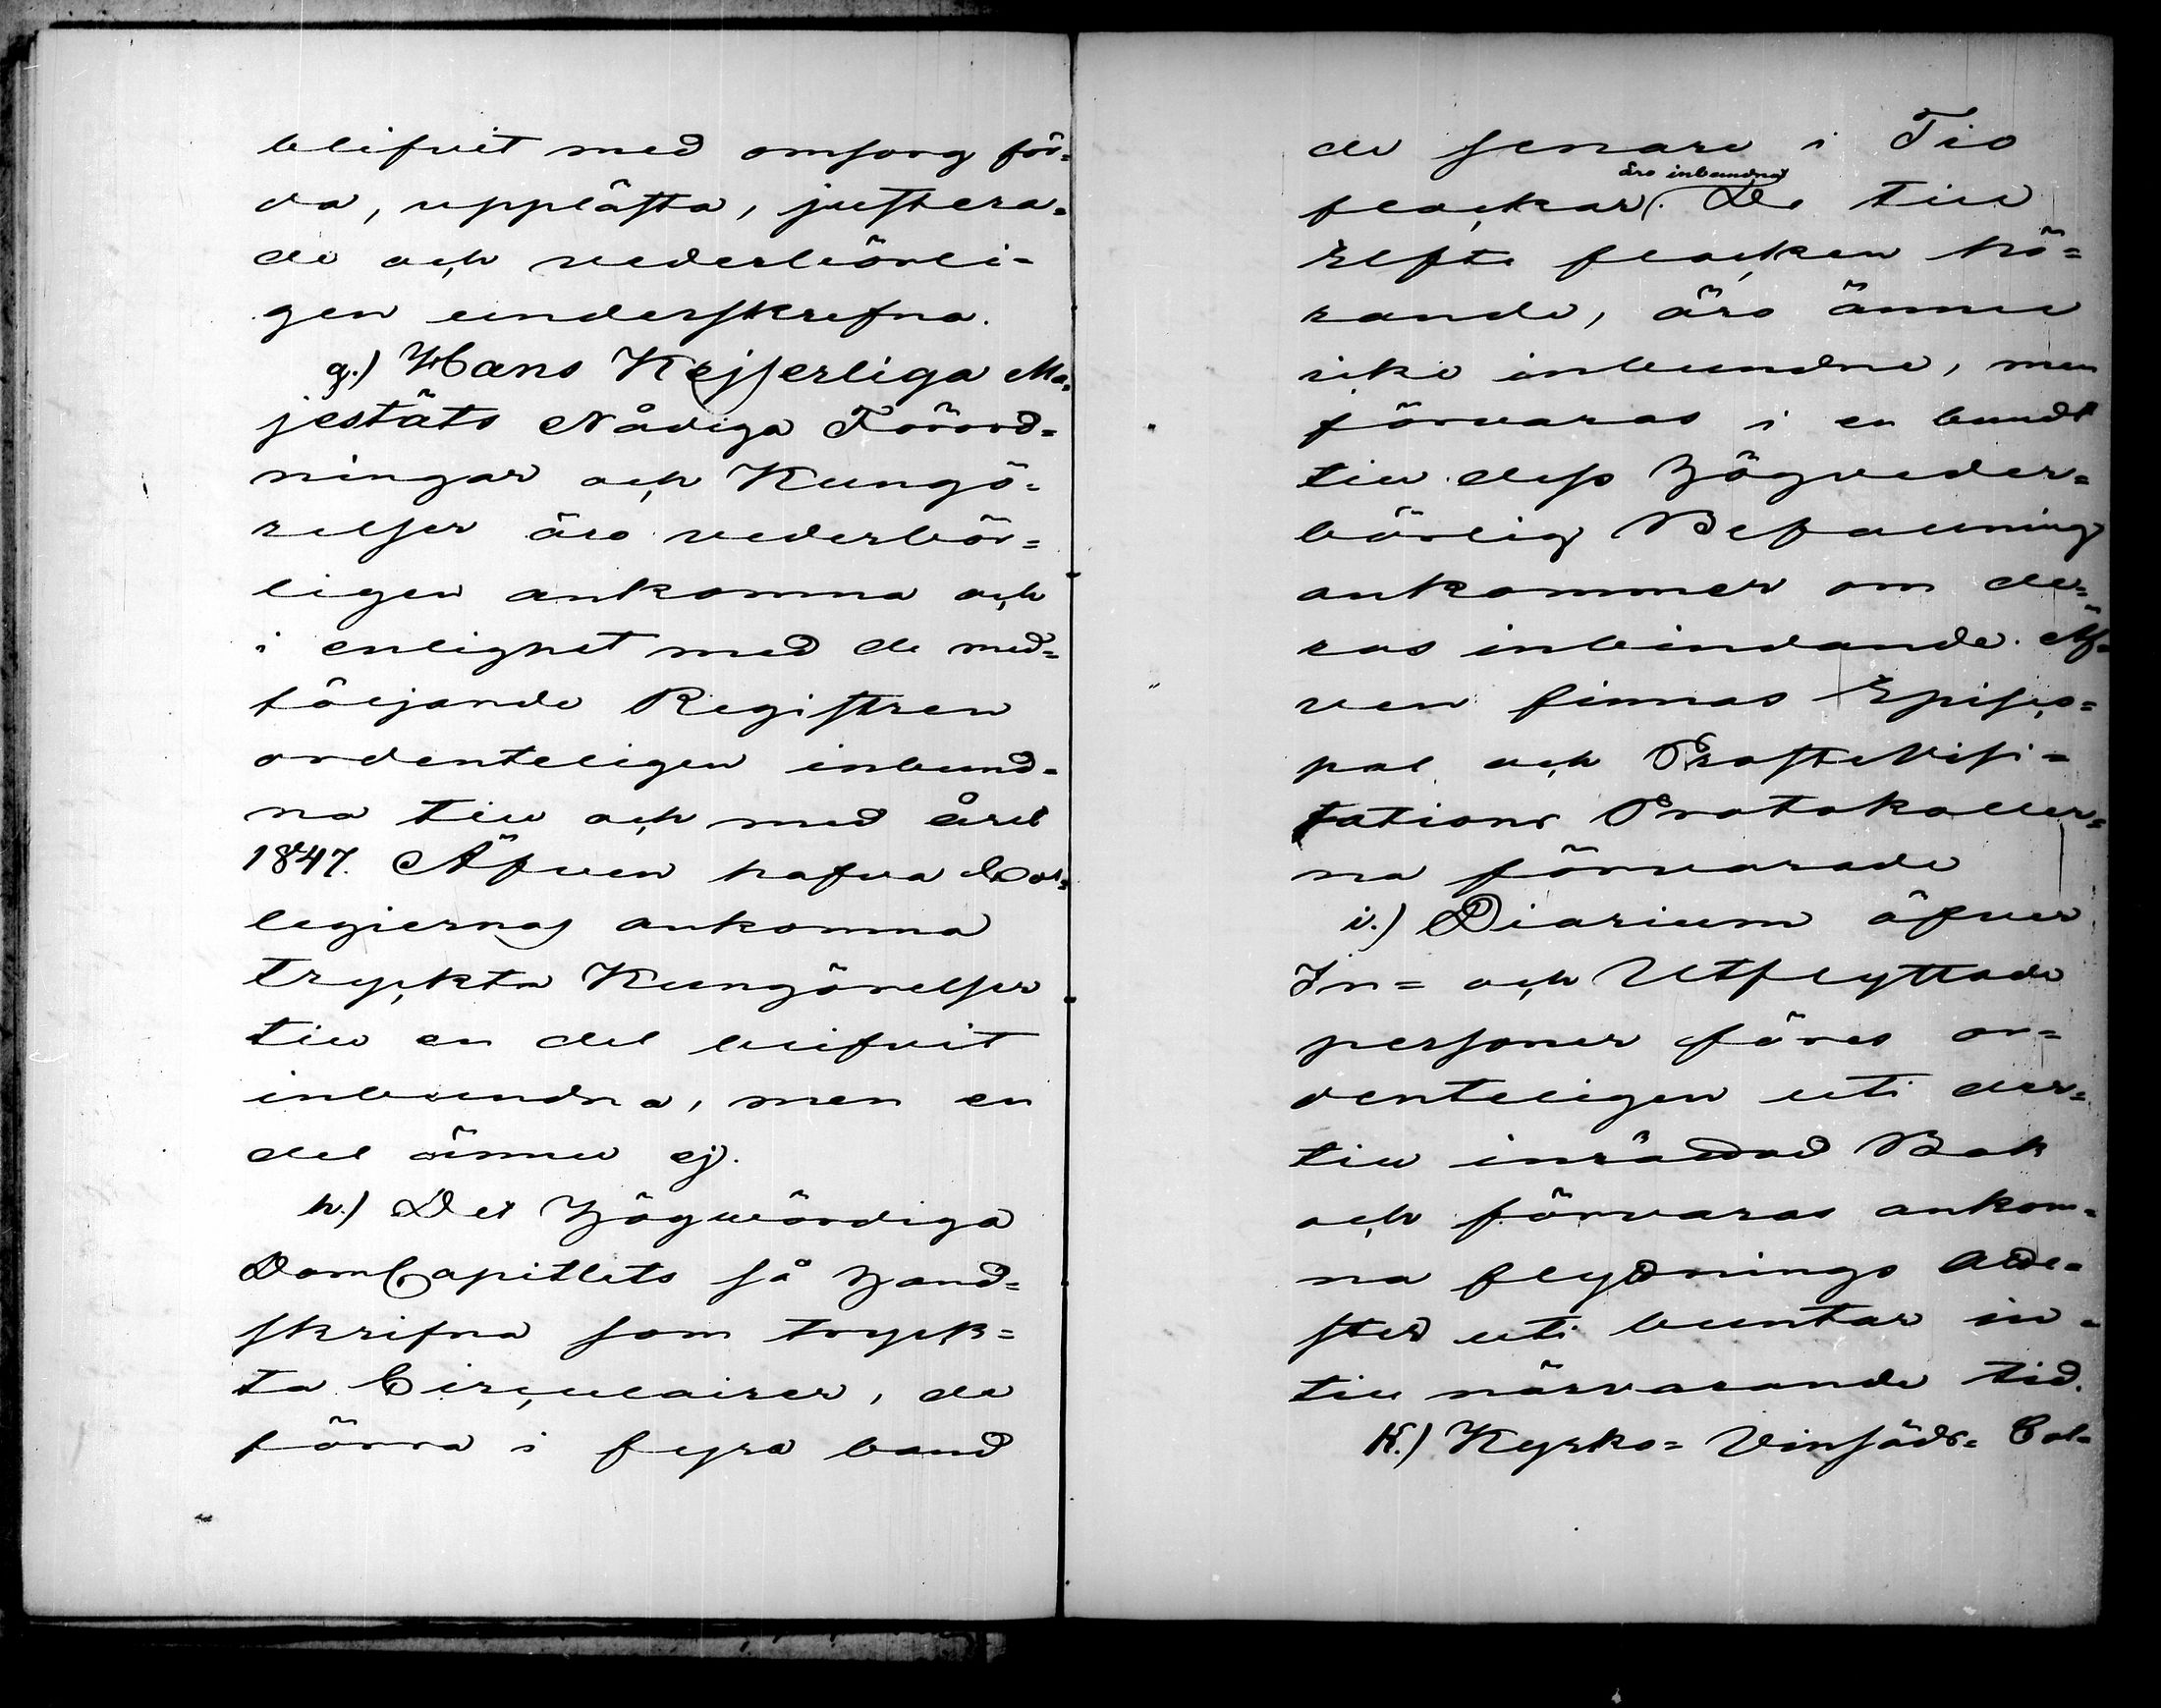 blifvit med omsorg för=
da, upplästa, justera=
de och vederbörli=
gen underskrefna.
g.) Hans Kejserliga Ma=
jestäts Nådiga Förord=
ningar och Kungö=
relser äro vederbör=
ligen ankomna och
i enlighet med de med=
följande Registren
ordenteligen inbund=
na till och med året
1847. Äfven hafva Col=
legiernas ankomna
tryckta Kungörelser
till en del blifvit
inbundna, men en
del ännu ej.
h.) Det Högwördiga
DomCapitlets så Hand=
skrifna som tryck=
ta Circulairer, de
förra i fyra band
de senare i Tio
äro inbundna
flockar. De till
Elfte flocken hö=
rande, äro ännu
icke inbundne, men
förvaras i en bundt
till dess Högveder=
börlig Befallning
ankommer om de=
ras inbindande. Äf=
ven finnas Episco=
pal och ProsteVisi=
tations Protokoller=
na förvarade
i.) Diarium öfver
In= och Utflyttade
personer föres or=
denteligen uti der=
till inrättad Bok
och förvaras ankom=
na flyttnings Atte=
ster uti buntar in=
till närvarande tid.
K.) Kyrko= Vinsäds= Col=